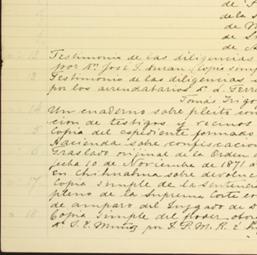 de la S
de
de
Testimonio de las diligencias
por Dn. José I. Duran, Copia simp
Testimonio de las diligencias
por los arrendatarios D. L. Ferre
Tomás Trigo
Un cuaderno sobre pleito con
cion de testigos y vecinos
Copia del espediente formado
Hacienda sobre confiscacion
Traslado original de la Orden
fecha 10 de Noviembre de 1871
en Chihuahua sobre devoluc
Copia simple de la sentenc
pleno de la Suprema Corte e
de amparo del Juzgado de D
Copia simple del poder otor
Dn. J. E. Muñoz por I. P. M. R. E.